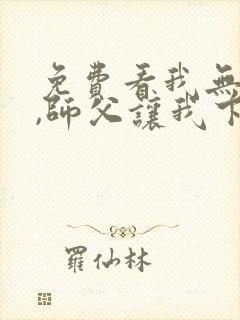 免費看我無
,師父讓我下
羅仙林